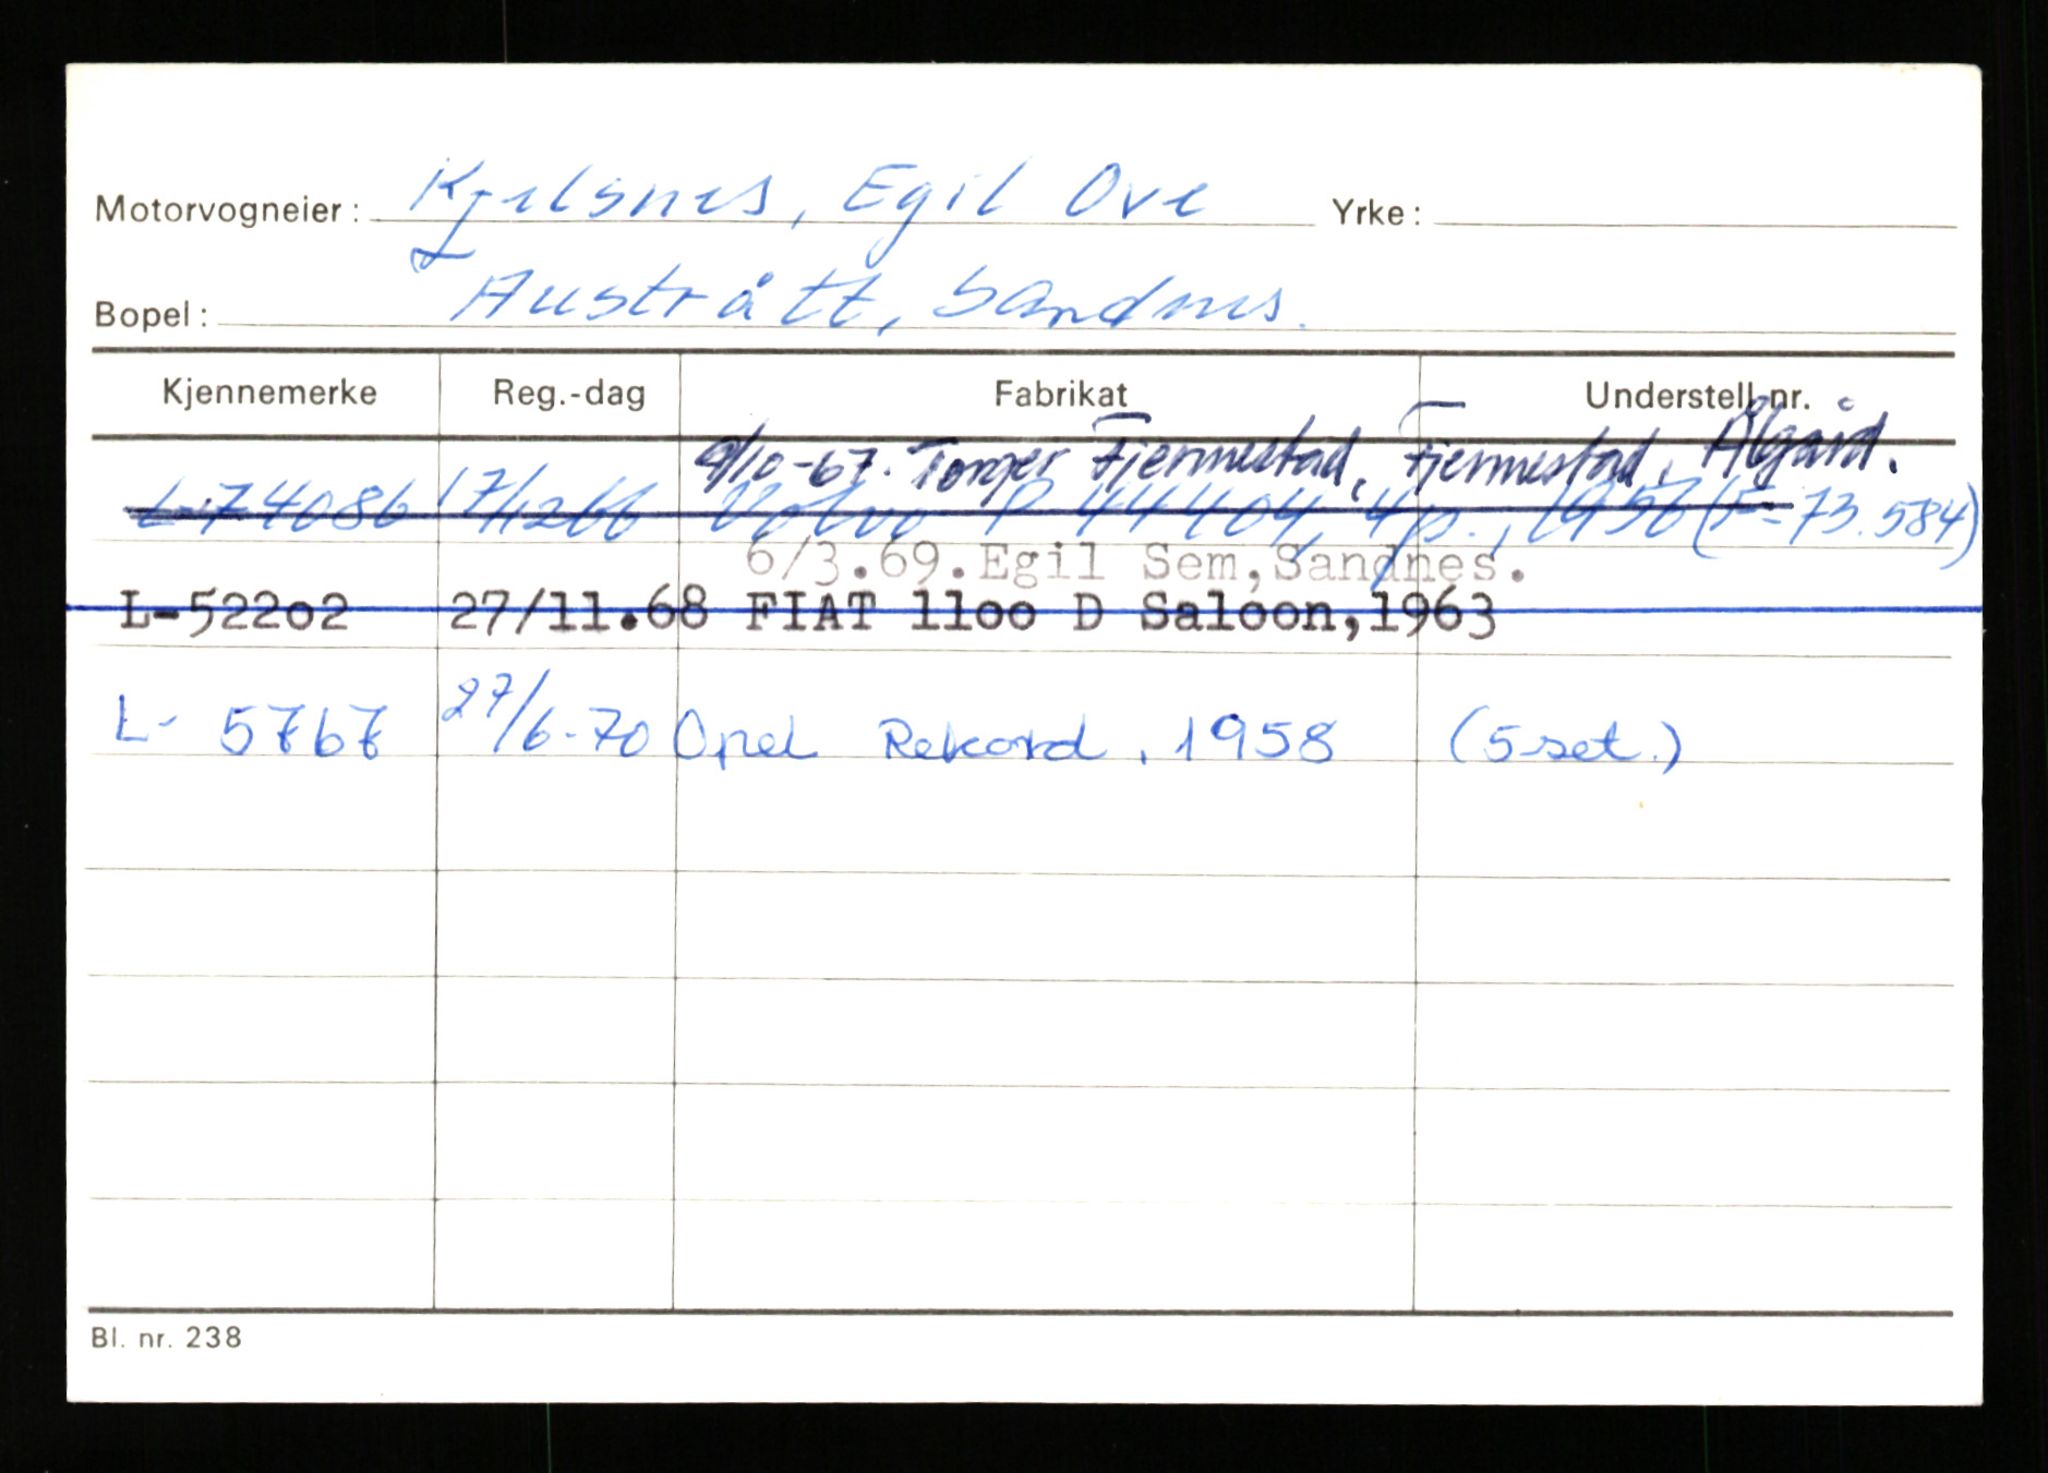 Motorvogneier: Kjelsnes, Egil Ove Yrke:
Bopel: Austrått, Sandnes.
Kjennemerke Reg.-dag Fabrikat Understell nr.
9/10-67. Torger Fjermestad, Fjermestad, Ålgård.
L-74086 17/1266 Volvo P 44404, 4 p., 1956 (F=73.584)
6/3.69.Egil Sem,Sandnes.
L-522o2 27/11.68 FIAT 11oo D Saloon,1963
L- 5767 27/6-70 Opel Rekord, 1958 (5 set.)
Bl. nr. 238